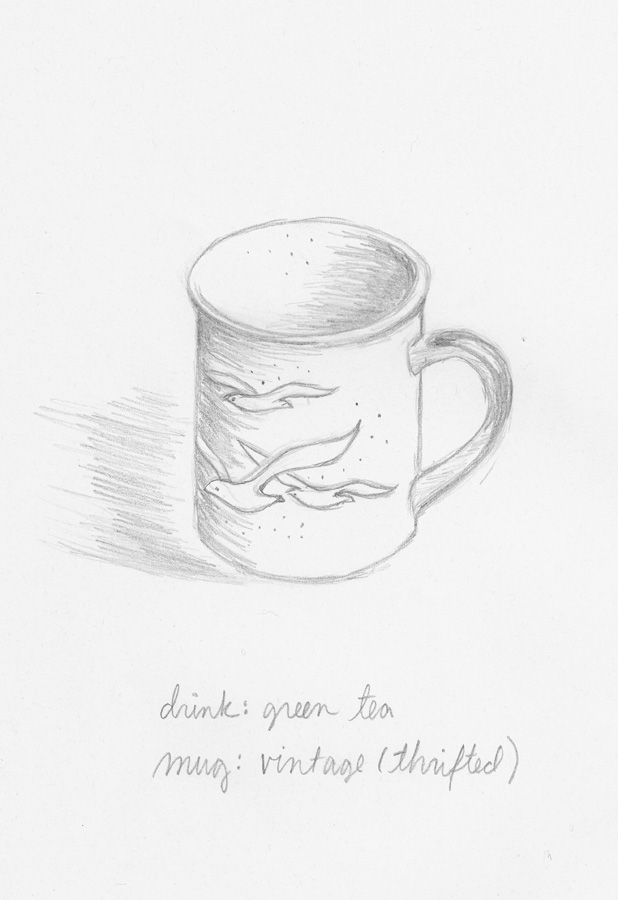 drink: green tea
mug: vintage (thrifted)